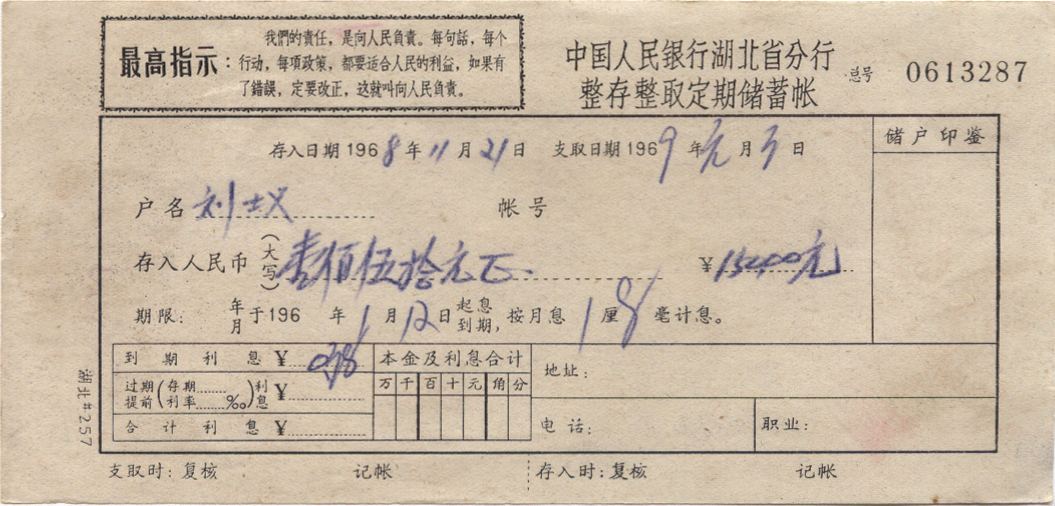 最高指示：
我們的責任，是向人民負責。每句話，每个
行动，每項政策，都要适合人民的利益，如果有
了錯誤，定要改正，这就叫向人民負責。
中国人民银行湖北省分行
整存整取定期储蓄帐
总号 0613287
储户印鉴
存入日期 1968 年 11 月 21 日 支取日期 1969 年 元 月 3 日
户名 刘士义 帐号
存入人民币（大写）壹佰伍拾元正. ¥ 150.00元
期限： 年月 于196 年 1 月 12 日 起息到期， 按月息 1 厘 8 毫计息。
到期利息 ¥ 0.38
本金及利息合计
地址：
过期提前（存期 利率 ‰）利息 ¥
万 千 百 十 元 角 分
合计利息 ¥
电话：
职业：
湖北#257
支取时：复核 记帐 存入时：复核 记帐